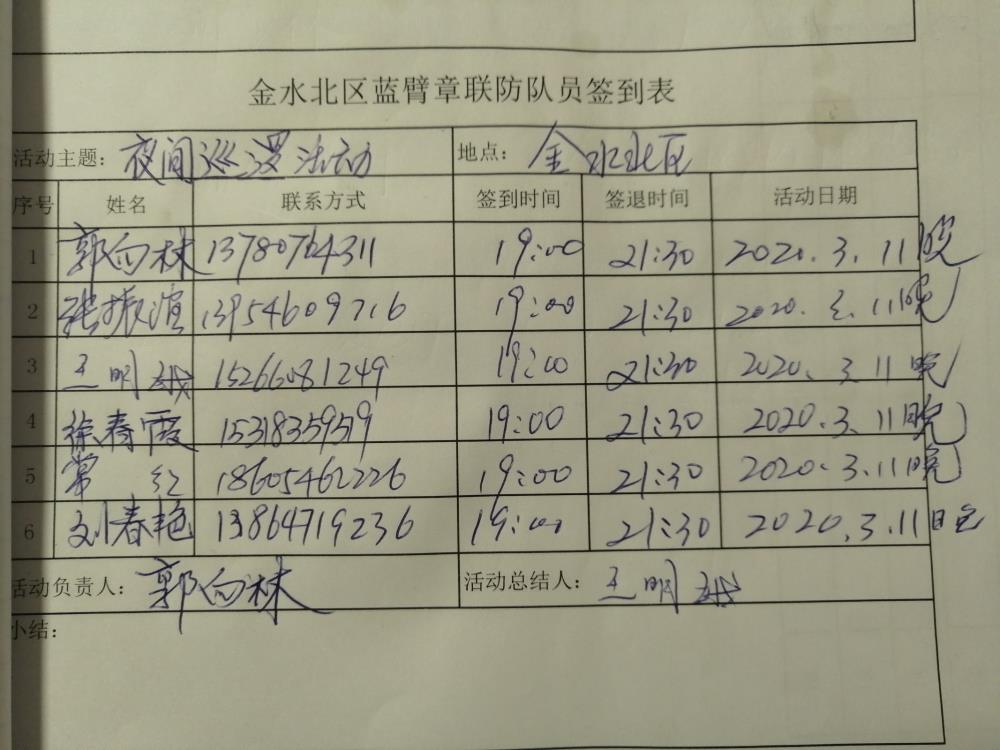 金水北区蓝臂章联防队员签到表
活动主题：夜间巡逻活动 地点：金水北区
序号 姓名 联系方式 签到时间 签退时间 活动日期
1 郭向林 13780764311 19:00 21:30 2020.3.11晚
2 张振滨 13954609716 19:00 21:30 2020.3.11晚
3 王明 15266081249 19:00 21:30 2020.3.11晚
4 徐春霞 15318359519 19:00 21:30 2020.3.11晚
5 常红 18605462226 19:00 21:30 2020.3.11晚
6 刘春艳 13864719236 19:00 21:30 2020.3.11晚
活动负责人：郭向林 活动总结人：王明
小结：